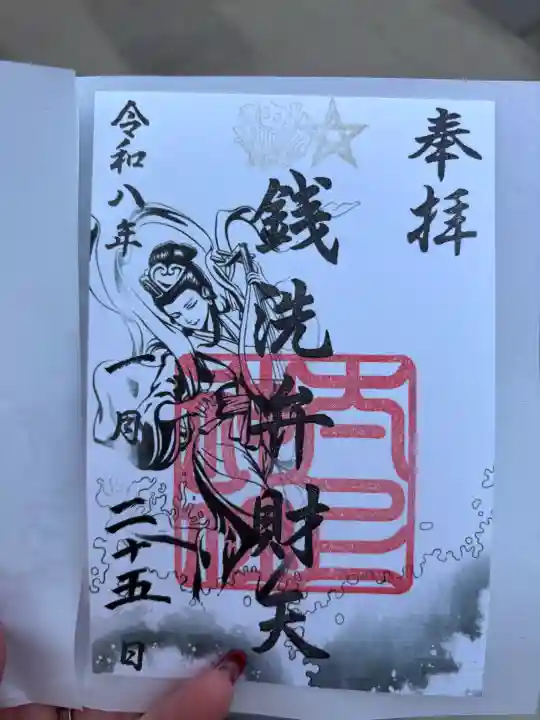 奉拝
銭洗弁財天
令和八年
一月
二十五日